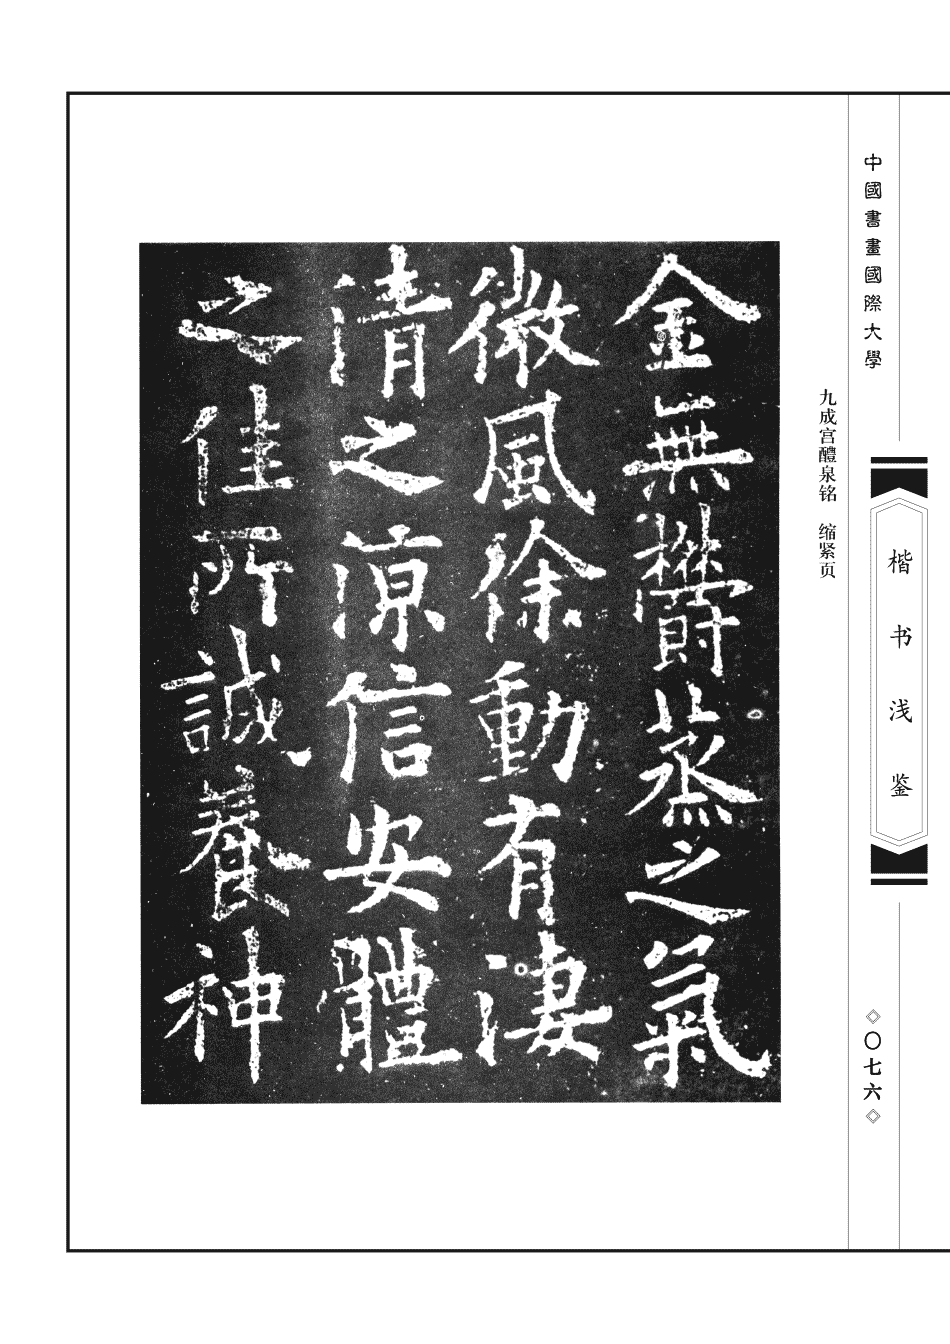 中國書畫國際大學
楷书浅鉴
◇〇七六◇
九成宫醴泉铭 缩紧页
金無欝蒸之氣
微風徐動有淒
清之涼信安體
之佳所誠養神